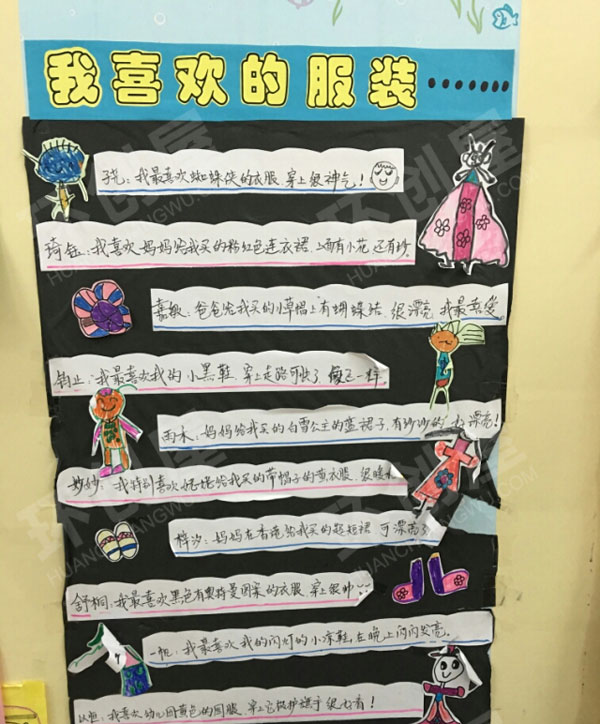 我喜欢的服装……
子尧：我最喜欢蜘蛛侠的衣服，穿上很神气！
琦钰：我喜欢妈妈给我买的粉红色连衣裙，上面有小花，还有纱。
嘉敏：爸爸给我买的小草帽上有蝴蝶结，很漂亮，我最喜爱
钧业：我最喜欢我的小黑鞋，穿上走路可快了，像飞一样。
雨木：妈妈给我买的白雪公主的蓝裙子，有纱纱的，漂亮！
妙妙：我特别喜欢姥姥给我买的带帽子的黄衣服，很暖
梓汐：妈妈在香港给我买的超短裙，可漂亮了
舒桐：我最喜欢黑色有奥特曼图案的衣服，穿上很帅
一恒：我最喜欢我的闪灯的小凉鞋，在晚上闪闪发亮。
我喜欢幼儿园黄色的园服，穿上它保护旗手很
环创屋
HUANCHUANGWU.COM